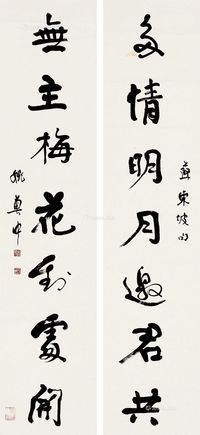 多情明月邀君共
蘇東坡句
無主梅花到處開
姚奠中